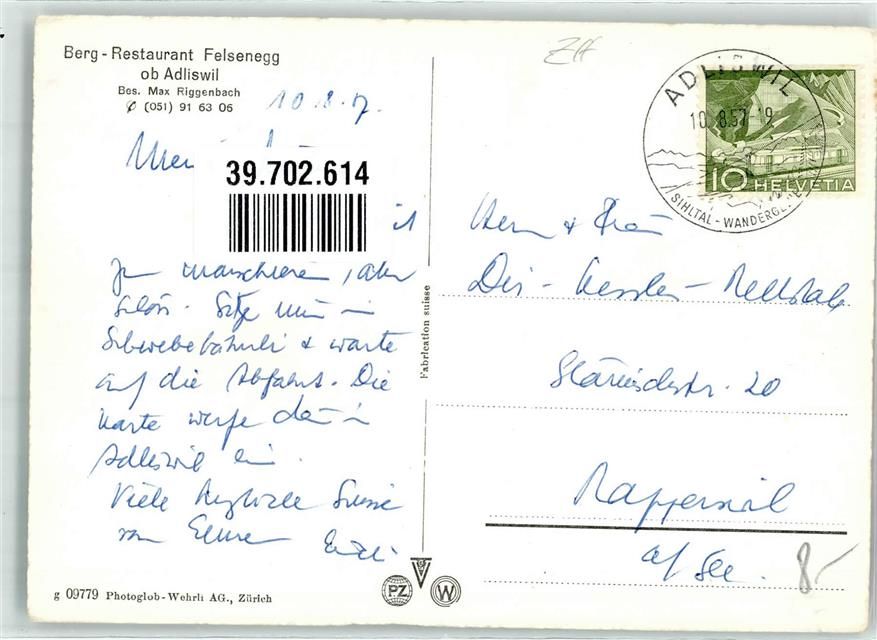 Berg-Restaurant Felsenegg
ob Adliswil
Bes. Max Riggenbach
✆ (051) 91 63 06
10.8.57.
39.702.614
ist
zu marschieren, aber
schön. Sitze nun im
Schwebebähnli & warte
auf die Abfahrt. Die
Karte werfe dann in
Adliswil ein.
Viele herzliche Grüsse
von Eurem
g 09779 Photoglob-Wehrli AG., Zürich
Fabrication suisse
PZ
W
ADLISWIL
10.8.57-19
SIHLTAL-WANDERGE
10 HELVETIA
Herrn & Frau
Dir. Kessler-
20
Rapperswil
a/See.
8.-